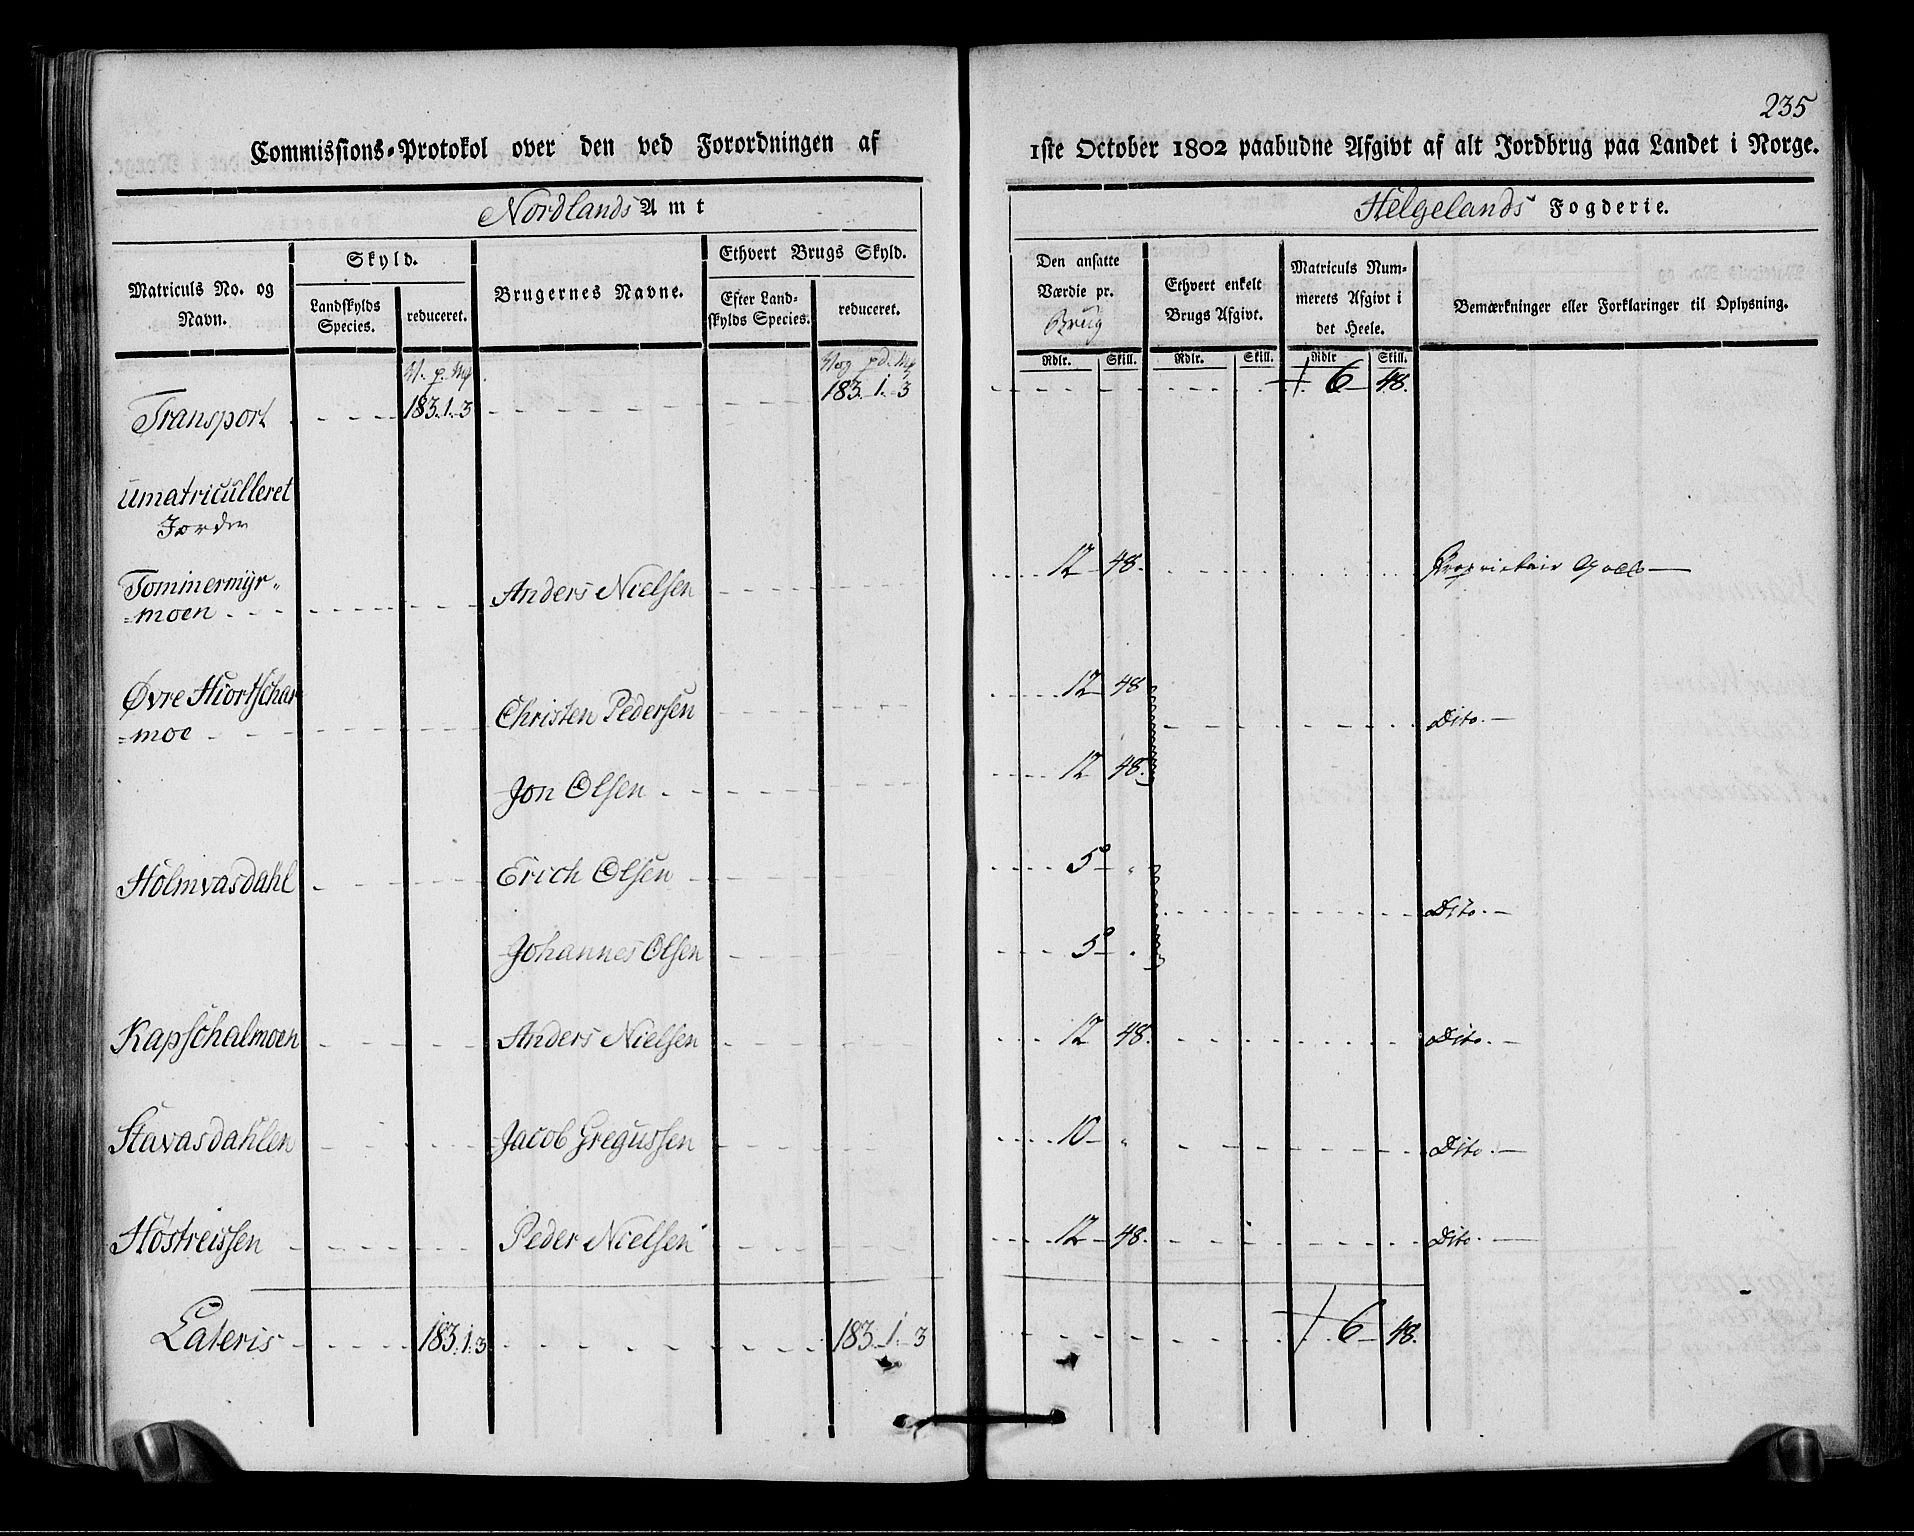 235
Commissions-Protokol over den ved Forordningen af 1ste October 1802 paabudne Afgivt af alt Jordbrug paa Landet i Norge.
Nordlands Amt
Helgelands Fogderie.
Matriculs No. og Navn.
Skyld.
Landskylds Species.
reduceret.
Brugernes Navne.
Ethvert Brugs Skyld.
Efter Landskylds Species.
reduceret.
Den ansatte Værdie pr. Brug
Ethvert enkelt Brugs Afgivt.
Matriculs Nummerets Afgivt i det Heele.
Bemærkninger eller Forklaringer til Oplysning.
Rdlr. Skill. Rdlr. Skill. Rdlr Skill.
Transport 183. 1. 3 183. 1. 3 6 48.
Umatriculleret
Jorder
Tommermÿr-
=moen Anders Nielsen 12 48. Proprietair Gods
Øvre Hiortschar
=moe Christen Pedersen 12 48 Dito.
Jon Olsen 12 48.
Holmvasdahl Erich Olsen 5 " Dito.
Johannes Olsen 5 "
Kapschalmoen Anders Nielsen 12 48. Dito.
Stavasdahlen Jacob Gregussen 10 " Dito.
Høstreissen Peder Nielsen 12 48. Dito.
Lateris 183. 1. 3 183. 1. 3 6 48.